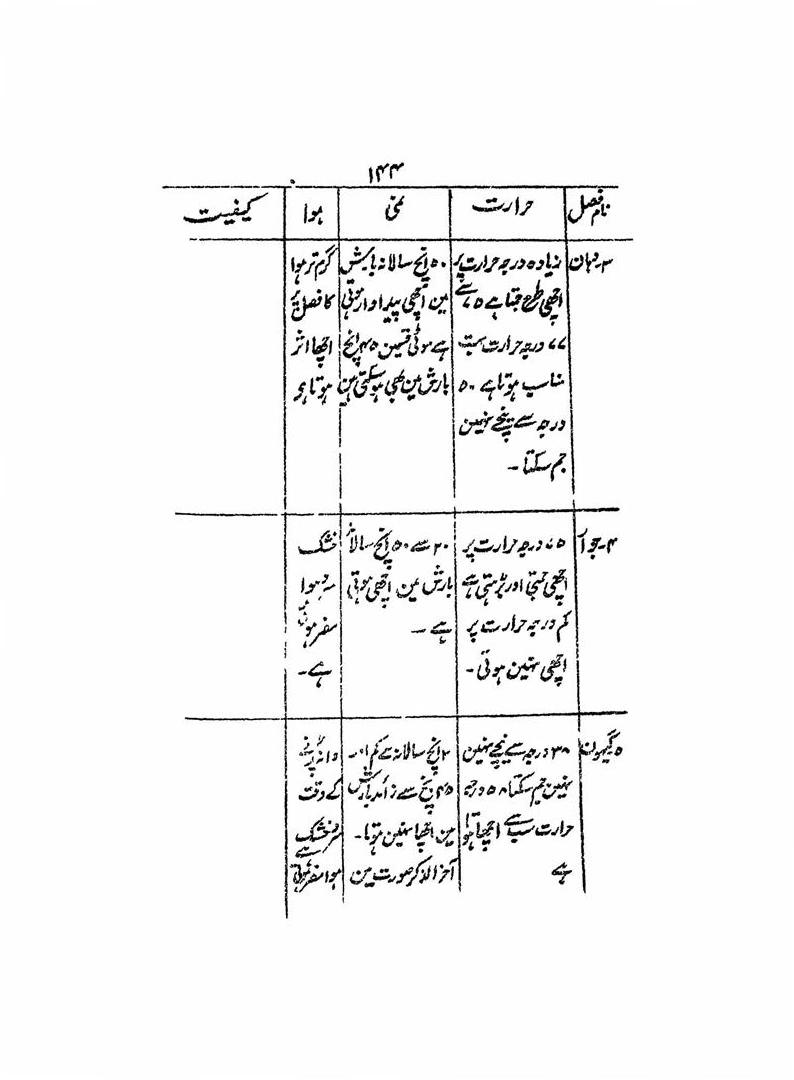 ۱۴۴
نام فصل حرارت نمی ہوا کیفیت
۳۔ دہان زیادہ درجہ حرارت پر ۵۰ انچ سالانہ بارش گرم تر ہوا
اچھی طرح جمتا ہے ۷۵ سے مین اچھی پیداوار ہوتی کا فصل پر
۷۷ درجہ حرارت بہت ہے موٹی قسمین ۴۵ انچ اچھا اثر
مناسب ہوتا ہے ۵۰ بارش مین بھی ہوسکتی ہین ہوتا ہی
درجہ سے نیچے نہین
جم سکتا۔
۴۔ جوار ۷۵ درجہ حرارت پر ۲۰ سے ۵۰ انچ سالانہ خشک
اچھی جمتی اور بڑھتی ہے بارش مین اچھی ہوتی ہوا
کم درجہ حرارت پر ہے۔ مضر ہوتی
اچھی نہین ہوتی۔ ہے۔
۵ گیہون ۳۸ درجہ سے نیچے نہین انچ سالانہ سے کم اور دانہ پڑنے
نہین جم سکتا ۸۵ درجہ ۴۵ انچ سے زائد بارش کے وقت
حرارت سب سے اچھا ہوتا مین اچھا نہین ہوتا۔ خشک
ہے آخر الذکر صورت مین ہوا مضر ہوتی ہے